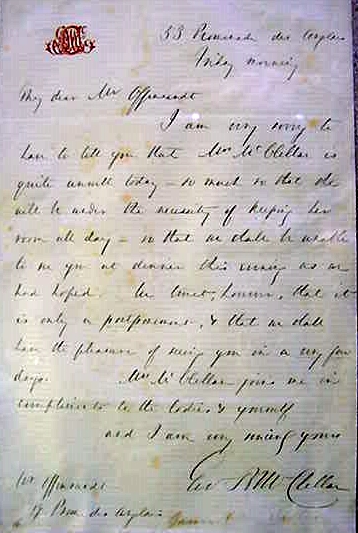 33 Promenade des Anglais
Friday morning
My dear Mr Offensandt
I am very sorry to
have to tell you that Mrs McClellan is
quite unwell today - so much so that she
will be under the necessity of keeping her
room all day - so that we shall be unable
to see you at dinner this evening as we
had hoped. We trust, however, that it
is only a postponement, & that we shall
have the pleasure of seeing you in a very few
days. Mrs McClellan joins me in
compliments to the ladies & yourself
and I am very sincerely yours
Geo B McClellan
Mr Offensandt
Prom. des Anglais